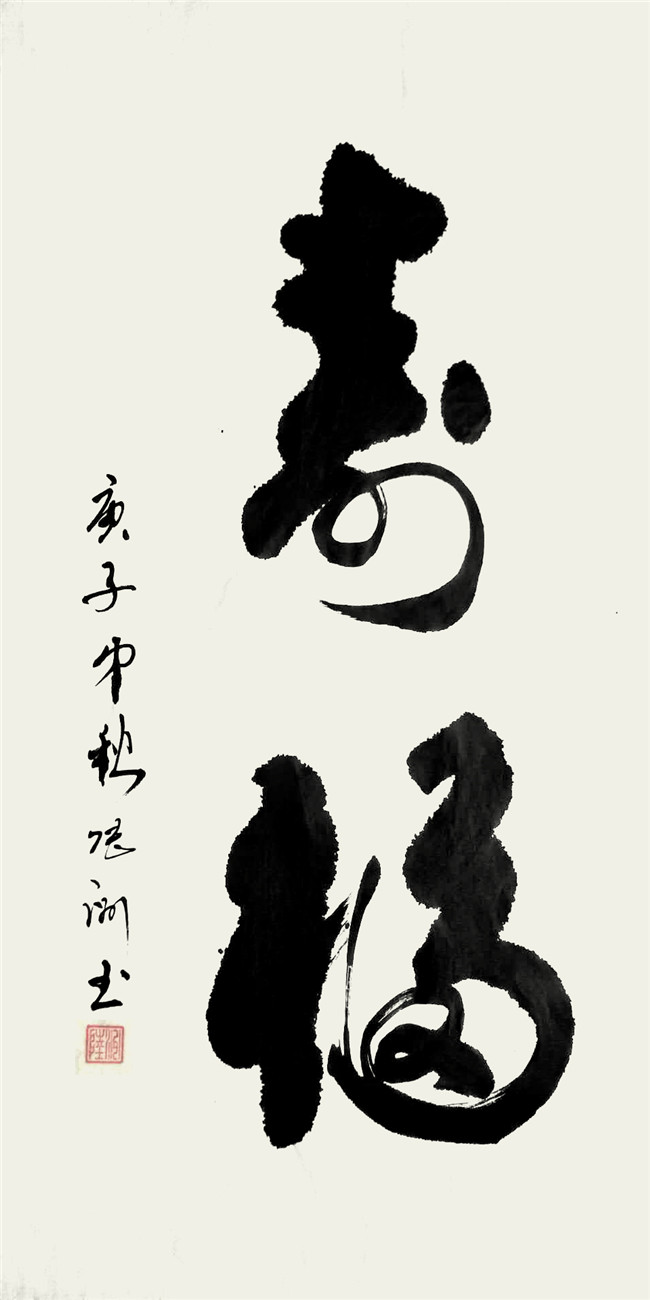 寿福
庚子中秋书